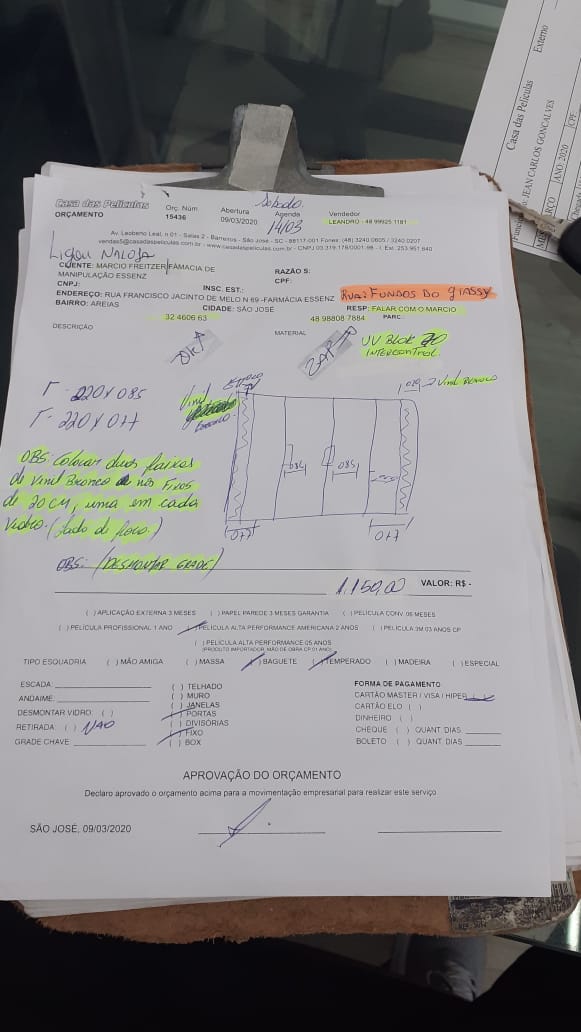 Casa das Películas
ORÇAMENTO
Orç. Núm
15436
Abertura
09/03/2020
Sábado
Agenda
14/03
Vendedor
LEANDRO - 48 99925 1181
Av. Leoberto Leal, n 01 - Salas 2 - Barreiros - São José - SC - 88117-001 Fones: (48) 3240 0605 / 3240 0207
vendas5@casadaspeliculas.com.br - www.casadaspeliculas.com.br - CNPJ 03.319.178/0001-98 - I. Est. 253.951.640
Ligou
CLIENTE: MARCIO FREITZER/FAMACIA DE
MANIPULAÇÃO ESSENZ
RAZÃO S:
CPF:
CNPJ:
INSC. EST.:
ENDEREÇO: RUA FRANCISCO JACINTO DE MELO N 69 -FARMÁCIA ESSENZ
RUA: FUNDOS DO GIASSY
BAIRRO: AREIAS
CIDADE: SÃO JOSÉ
RESP: FALAR COM O MARCIO
32 4606 63
48 98808 7884
PARC.:
DESCRIÇÃO
MATERIAL
UV Block 70
INTERCONTROL
1 - 220 X 085
1 - 220 X 077
Vinil
Vinil Branco
OBS: Colocar duas faixas
de Vinil Branco nos Fixos
de 20 CM, uma em cada
Vidro. (lado de fora.)
085
085
077
077
OBS: (DESMONTAR GRADE)
1.150,00
VALOR: R$ -
( ) APLICAÇÃO EXTERNA 3 MESES ( ) PAPEL PAREDE 3 MESES GARANTIA ( ) PELÍCULA CONV. 06 MESES
( ) PELÍCULA PROFISSIONAL 1 ANO ( ) PELÍCULA ALTA PERFORMANCE AMERICANA 2 ANOS ( ) PELÍCULA 3M 03 ANOS CP
( ) PELÍCULA ALTA PERFORMANCE 05 ANOS
(PRODUTO IMPORTADOR, MÃO DE OBRA CP 01 ANO)
TIPO ESQUADRIA ( ) MÃO AMIGA ( ) MASSA ( ) BAGUETE ( ) TEMPERADO ( ) MADEIRA ( ) ESPECIAL
ESCADA:
ANDAIME:
DESMONTAR VIDRO: ( )
RETIRADA: ( ) NÃO
GRADE CHAVE
( ) TELHADO
( ) MURO
( ) JANELAS
( ) PORTAS
( ) DIVISÓRIAS
( ) FIXO
( ) BOX
FORMA DE PAGAMENTO
CARTÃO MASTER / VISA / HIPER
CARTÃO ELO ( )
DINHEIRO ( )
CHEQUE ( ) QUANT. DIAS
BOLETO ( ) QUANT. DIAS
APROVAÇÃO DO ORÇAMENTO
Declaro aprovado o orçamento acima para a movimentação empresarial para realizar este serviço
SÃO JOSÉ, 09/03/2020
Casa das Películas
Externo
JEAN CARLOS GONCALVES
ANO: 2020
CPF: